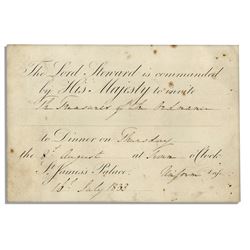 The Lord Steward is commanded
by His Majesty to invite
The Treasurer of the Ordnance
to Dinner on Thursday
the August at o'Clock
St. James's Palace. Uniform
July 1833